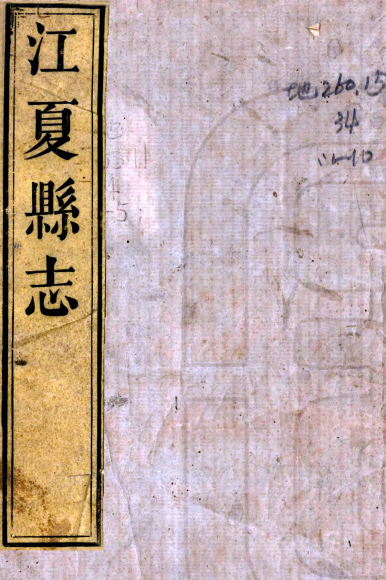 江夏縣志
地260.15
34